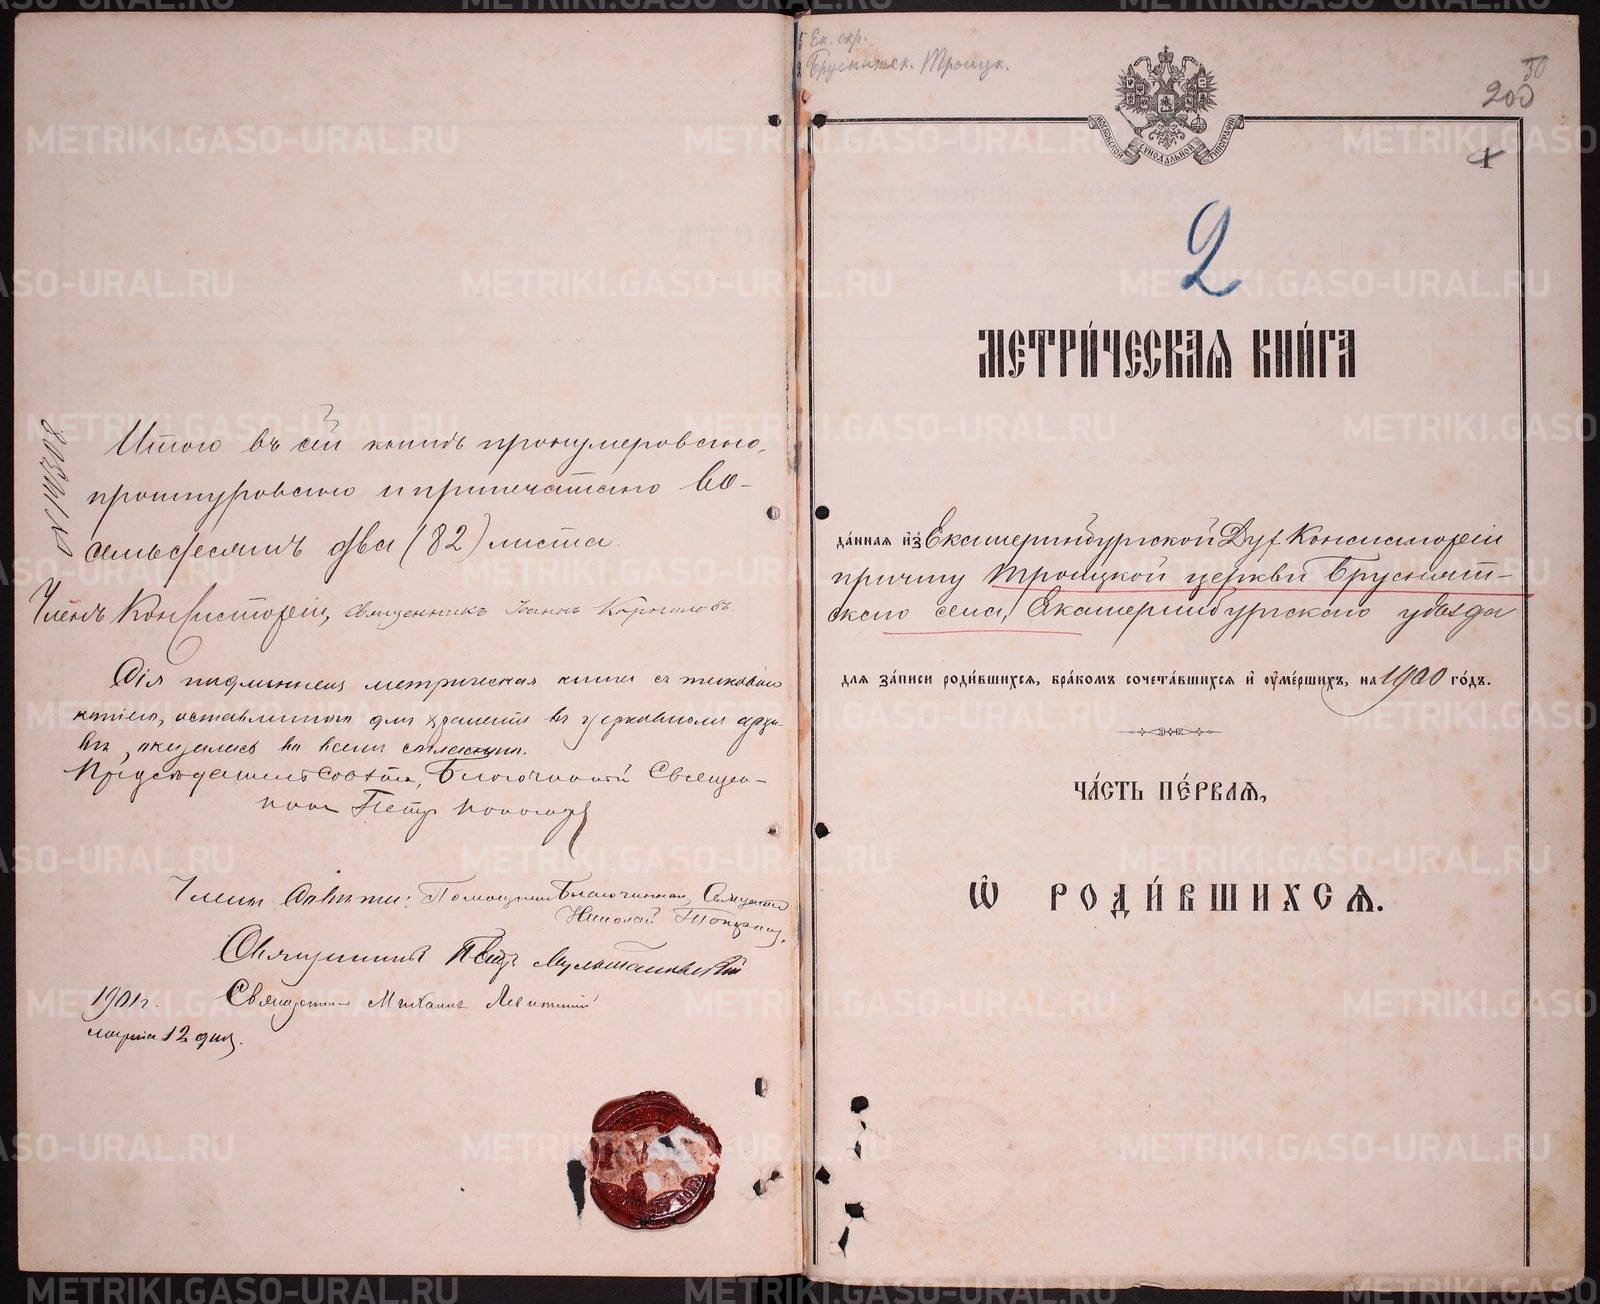 № 14308
Итого въ сей книгѣ пронумеровано,
прошнуровано и припечатано во-
семьдесятъ два (82) листа.
Членъ Консисторіи, Священникъ Іоаннъ Корниловъ.
Сія подлинная метрическая книга съ таковою
копіею, оставленною для храненія въ церковномъ архи-
вѣ, оказалась во всемъ согласна.
Предсѣдатель Совѣта, Благочинный Священ-
никъ Петръ
Члены Совѣта: Помощникъ Благочиннаго, Священникъ
Николай
Священникъ Петръ Мультановскій
1901 г. Священникъ Михаилъ Левитскій
марта 12 дня.
Ек. окр.
Бруснятск. Троицк.
50
200
МОСКОВСКОЙ СѴНОДАЛЬНОЙ ТИПОГРАФІИ
2
МЕТРИ́ЧЕСКАѦ КНИ́ГА
да́нная и҆з̾ Екатеринбургской Дух Консисторіи
причту Троицкой церкви Бруснят-
скаго села, Екатеринбургскаго уѣзда
для за́писи роди́вшихсѧ, бра́комъ сочета́вшихсѧ и҆ ᲂу҆ме́ршихъ, на 1900 го́дъ.
ЧА́СТЬ ПЕ́РВАѦ,
Ѡ҆ РОДИ́ВШИХСѦ.
METRIKI.GASO-URAL.RU